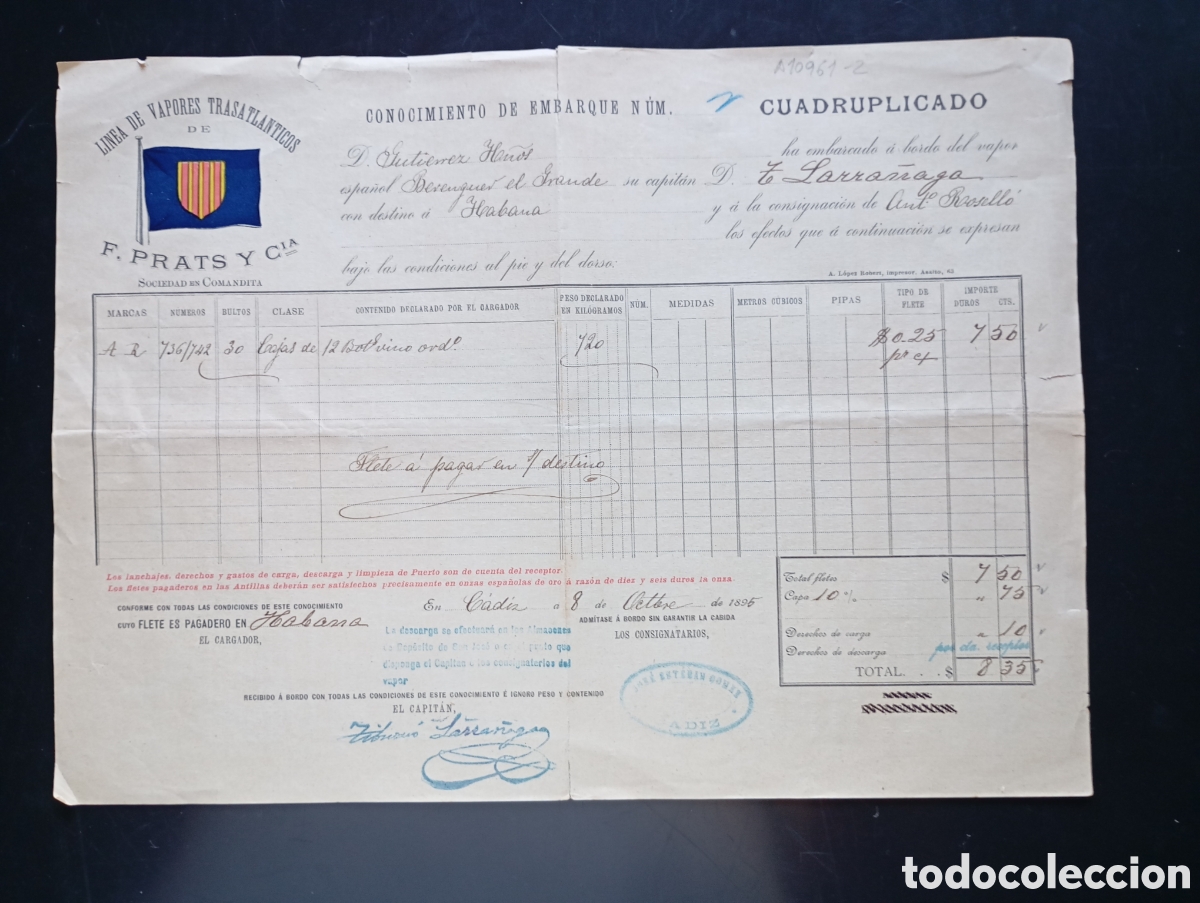 A10961-2
LINEA DE VAPORES TRASATLANTICOS
DE
F. PRATS Y CIA
SOCIEDAD EN COMANDITA
CONOCIMIENTO DE EMBARQUE NÚM. CUADRUPLICADO
D. Gutierrez Hnos ha embarcado á bordo del vapor
español Berenguer el Grande su capitán D. T Larrañaga
con destino á Habana y á la consignación de Anto Roselló
los efectos que á continuación se expresan
bajo las condiciones al pie y del dorso:
A. López Robert, impresor, Asalto, 63
MARCAS NÚMEROS BULTOS CLASE CONTENIDO DECLARADO POR EL CARGADOR PESO DECLARADO EN KILÓGRAMOS NÚM. MEDIDAS METROS CÚBICOS PIPAS TIPO DE FLETE IMPORTE DUROS CTS.
A R 736/742 30 Cajas de 12 Bots vino ordo 720 $0.25 7 50
pr cj
Flete á pagar en s/ destino
Los lanchajes, derechos y gastos de carga, descarga y limpieza de Puerto son de cuenta del receptor
Los fletes pagaderos en las Antillas deberán ser satisfechos precisamente en onzas españolas de oro á razón de diez y seis duros la onza
CONFORME CON TODAS LAS CONDICIONES DE ESTE CONOCIMIENTO
CUYO FLETE ES PAGADERO EN Habana
EL CARGADOR,
En Cádiz a 8 de Octbre de 1895
ADMÍTASE Á BORDO SIN GARANTIR LA CABIDA
LOS CONSIGNATARIOS,
La descarga se efectuará en los Almacenes
de Depósito de San José o en el punto que
disponga el Capitan o los consignatarios del
vapor
JOSÉ ESTEBAN GOMEZ
CADIZ
RECIBIDO Á BORDO CON TODAS LAS CONDICIONES DE ESTE CONOCIMIENTO É IGNORO PESO Y CONTENIDO
EL CAPITÁN,
Tiburcio Larrañaga
Total fletes $ 7 50
Capa 10 % " 75
Derechos de carga " 10
Derechos de descarga por cta. receptor
TOTAL. . . . $ 8 35
todocoleccion